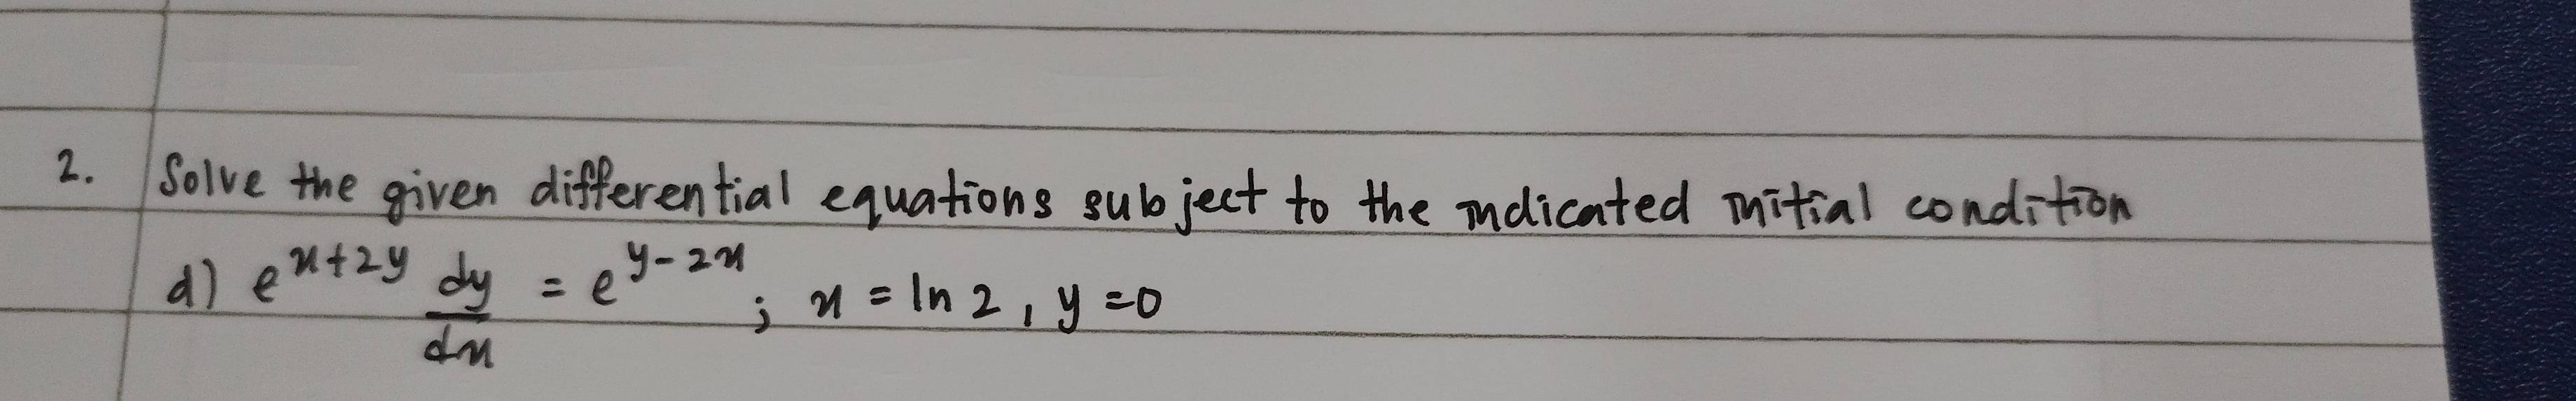 2. Solve the given differential equations subject to the indicated initial condition
d) e^{x+2y} dy/dx = e^{y-2x}; x = ln 2, y = 0